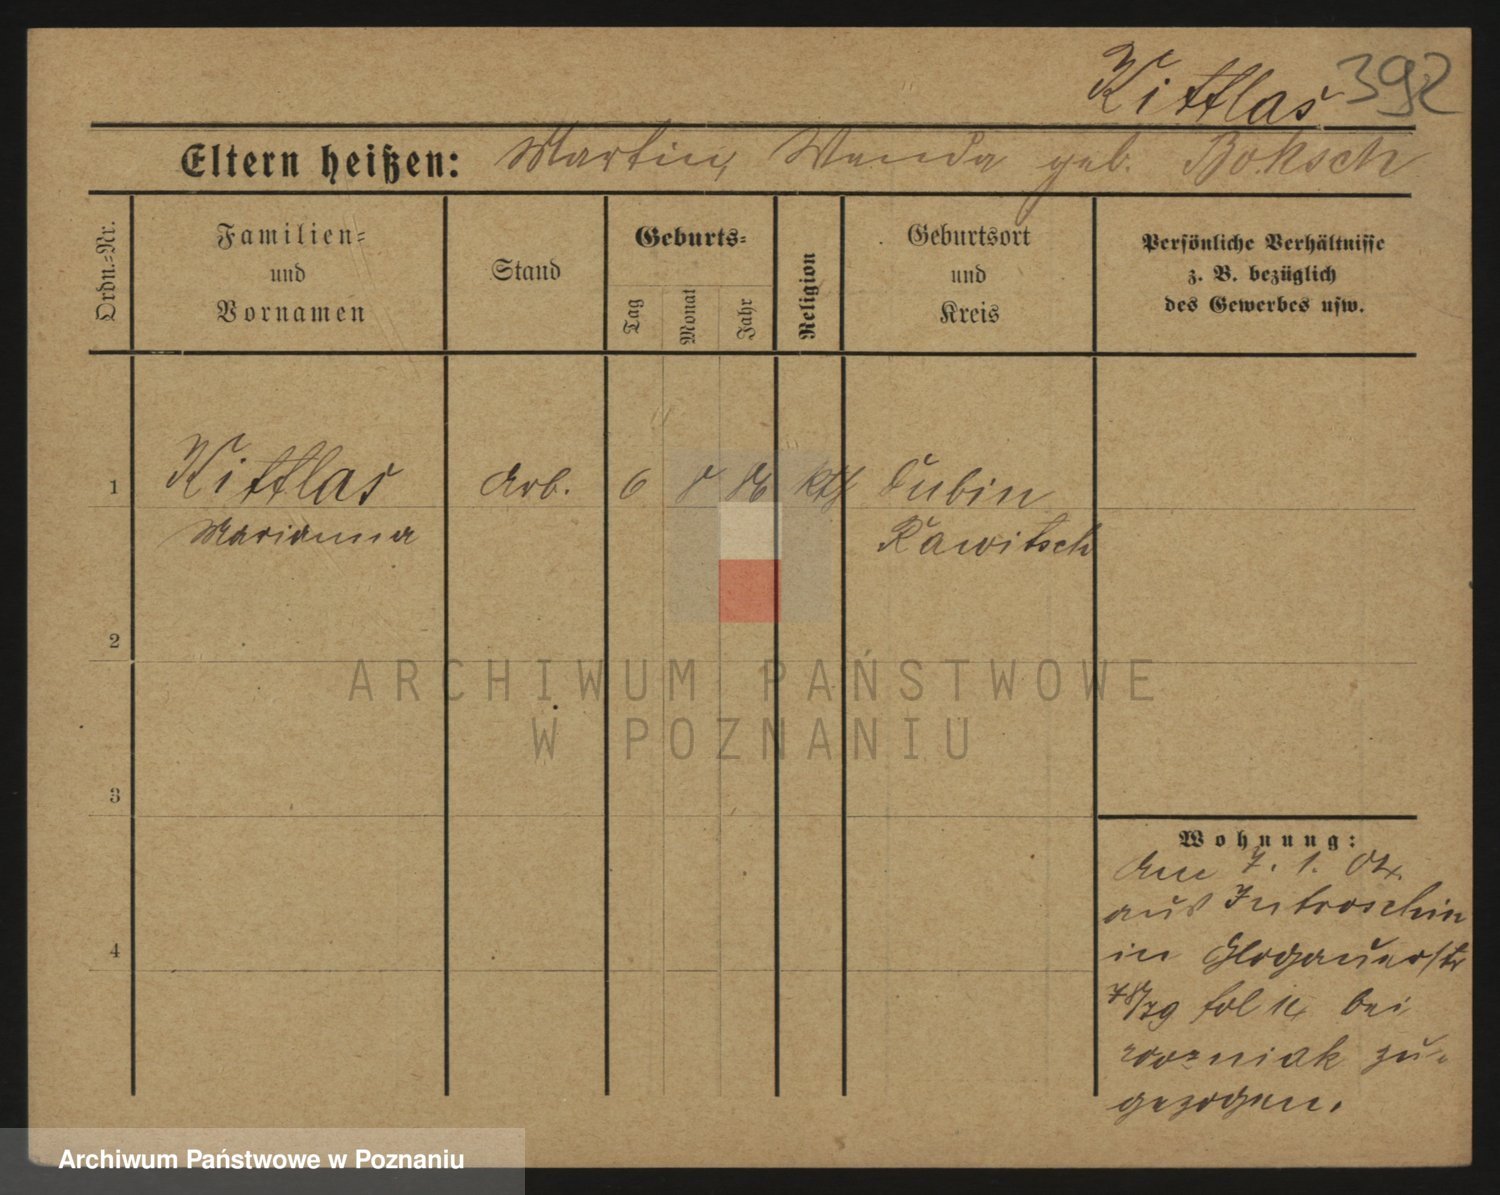 Kittlas 392
Eltern heißen: Martin, Wanda geb. Boksch
Ordn.=Nr.
Familien=
und
Vornamen
Stand
Geburts=
Tag
Monat
Jahr
Religion
Geburtsort
und
Kreis
Persönliche Verhältnisse
z. B. bezüglich
des Gewerbes usw.
1 Kittlas Arb. 6 8 86 kth Dubin
Marianna Rawitsch
2
3
4
Wohnung:
Am 7. 1. 07.
aus Jutroschin
in Glogauerstr
78/79 bei
Wozniak zu=
gezogen.
ARCHIWUM PAŃSTWOWE
W POZNANIU
Archiwum Państwowe w Poznaniu